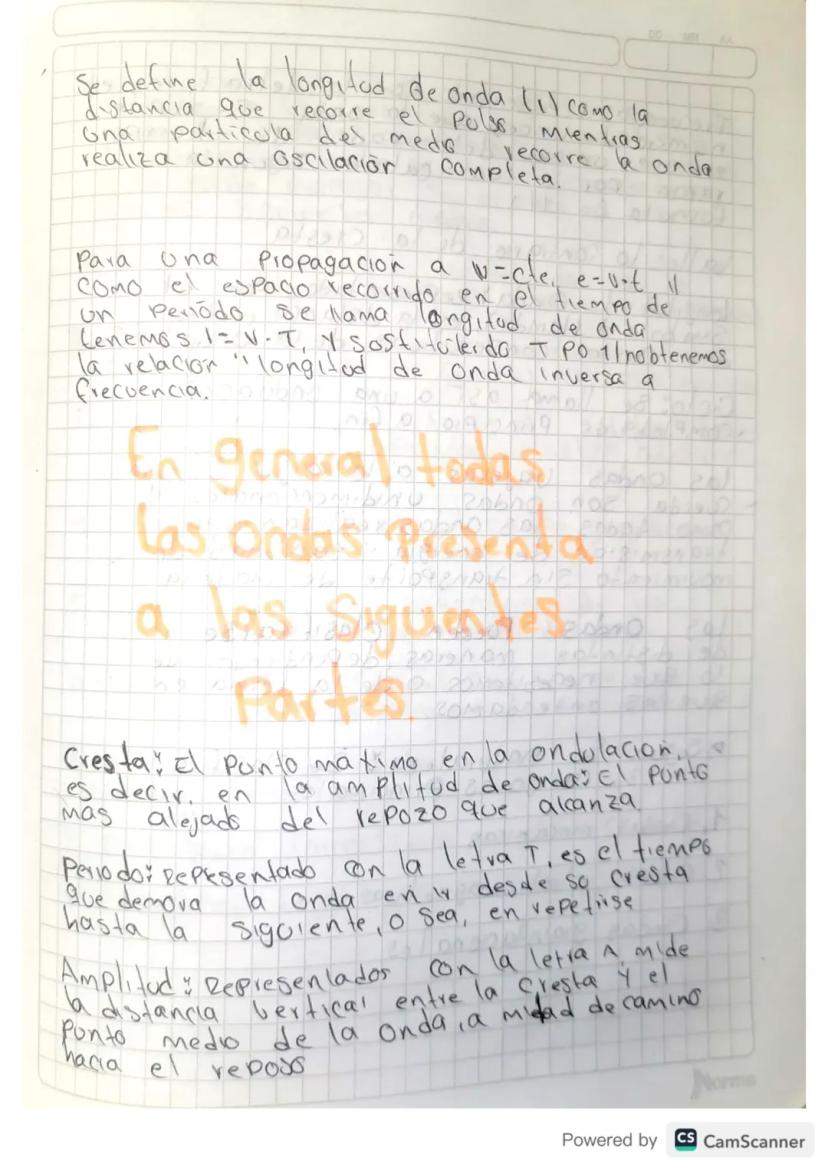 Se define la longitud de onda (1) como la
distancia que recorre el pulso mientras
una particula del medio recorre la onda
realiza una oscilación completa.
Para una Propagación a v=cte, e=v·t, y
como el espacio recorrido en el tiempo de
un período se llama longitud de onda
tenemos l= v·T, y sostitulerdo T Po 1/n obtenemos
la relación "longitud de onda inversa a
frecuencia.
En general todas
las ondas Presenta
a las Siguentes
Partes.
Cresta: El Punto maximo en la ondulación,
es decir, en la amplitud de onda: El Punto
mas alejado del repozo que alcanza
Periodo: Representado con la letra T, es el tiempo
que demora la onda en ir desde su cresta
hasta la siguiente, o sea, en repetirse
Amplitud: Representados con la letra A, mide
la distancia vertical entre la cresta y el
Punto medio de la onda, a mitad de camino
hacia el reposo
Norma
Powered by CS CamScanner